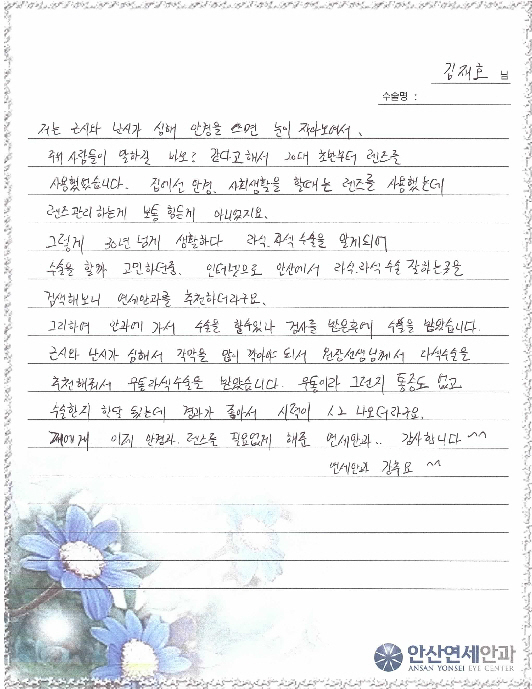 김재호 님
수술명 :
저는 근시와 난시가 심해 안경을 쓰면 눈이 작아보여서,
주위 사람들이 말하길 바보? 같다고해서 20대 초반부터 렌즈를
사용했었습니다. 집에선 안경. 사회생활을 할때는 렌즈를 사용했는데
렌즈관리하는게 보통 힘든게 아니었지요.
그렇게 30년 넘게 생활하다 라식.라섹 수술을 알게되어
수술을 할까 고민하던중. 인터넷으로 안산에서 라식.라섹 수술 잘하는곳을
검색해보니 연세안과를 추천하더라구요.
그리하여 안과에 가서 수술을 할수있나 검사를 받은후에 수술을 받았습니다.
근시와 난시가 심해서 각막을 많이 깍아야 되서 원장선생님께서 라섹수술을
추천해줘서 무통라식수술을 받았습니다. 무통이라 그런지 통증도 없고
수술한지 한달 됬는데 결과가 좋아서 시력이 1.2 나오더라구요.
저에게 이제 안경과. 렌즈를 필요없게 해준 연세안과.. 감사합니다 ^^
연세안과 강추요 ^^
안산연세안과
ANSAN YONSEI EYE CENTER